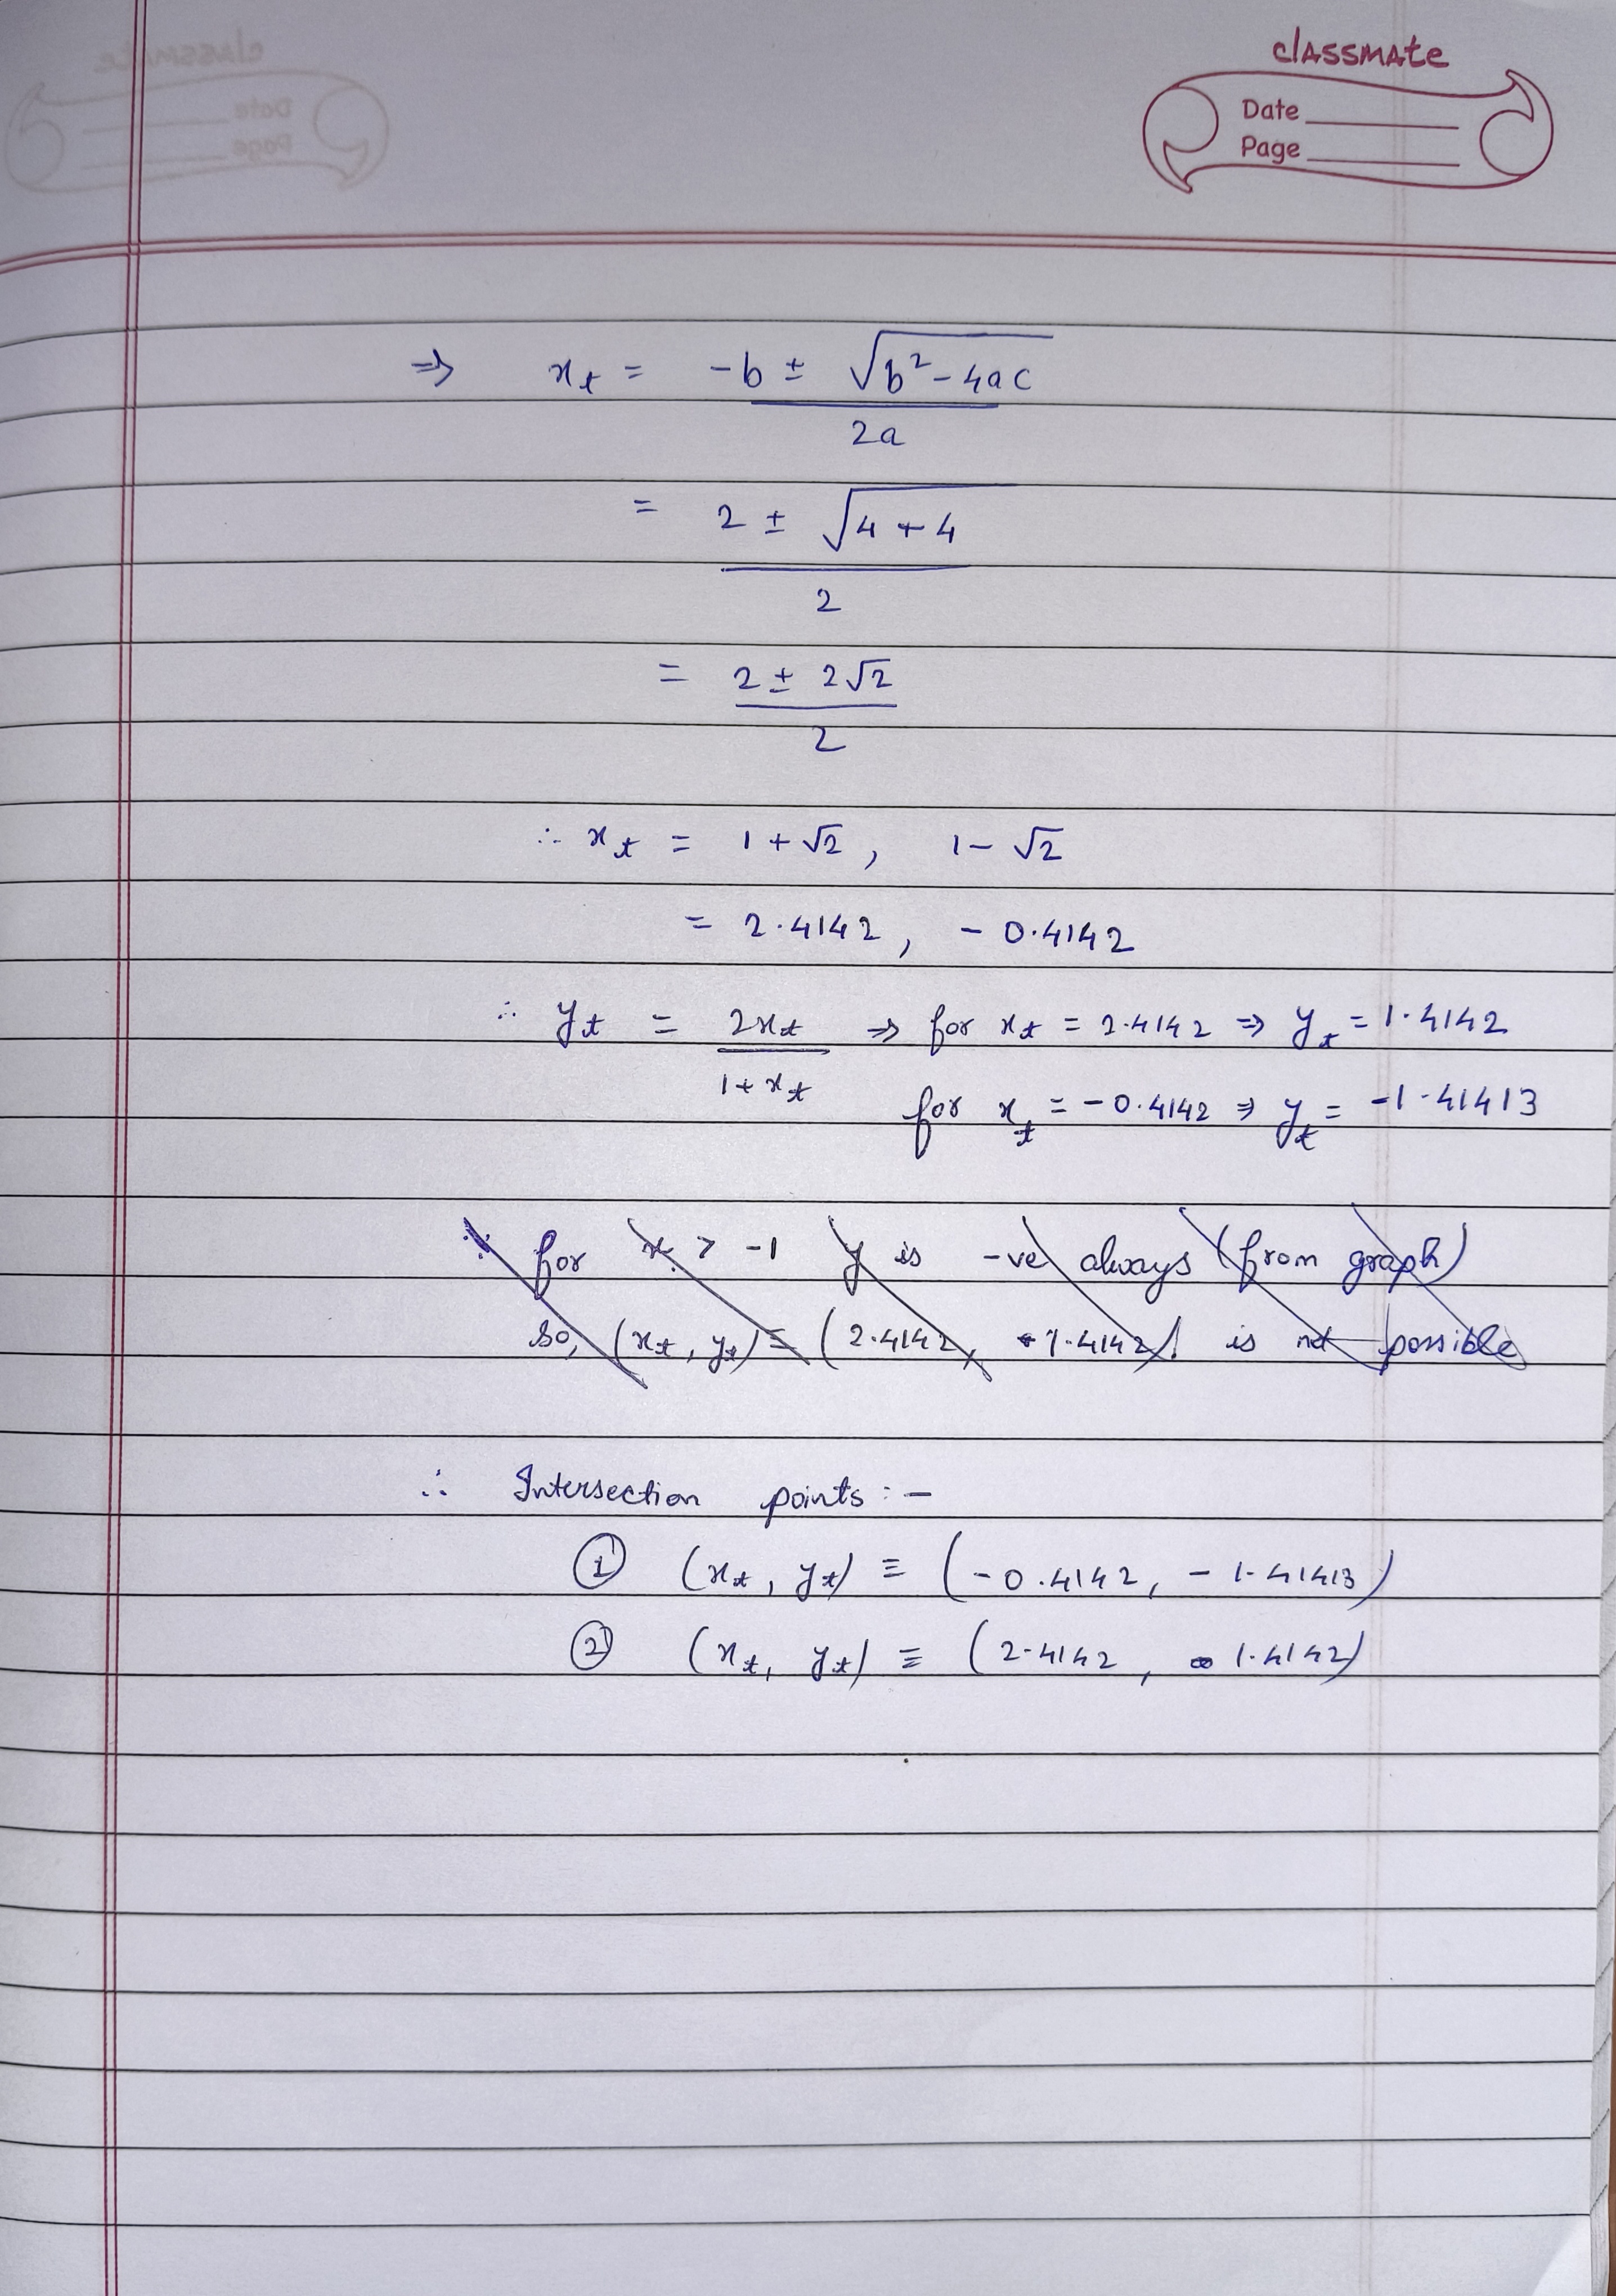 classmate
Date
Page
⇒ x_t = -b ± √(b² - 4ac)
2a
= 2 ± √(4 + 4)
2
= 2 ± 2√2
2
∴ x_t = 1 + √2 , 1 - √2
= 2.4142 , - 0.4142
∴ y_t = 2x_t ⇒ for x_t = 2.4142 ⇒ y_t = 1.4142
1 + x_t for x_t = -0.4142 ⇒ y_t = -1.41413
∵ for x > -1 y is -ve always (from graph)
so, (x_t , y_t) = (2.4142, 1.4142) is not possible
∴ Intersection points :-
① (x_t , y_t) ≡ (-0.4142, -1.41413)
② (x_t , y_t) ≡ (2.4142 , 1.4142)